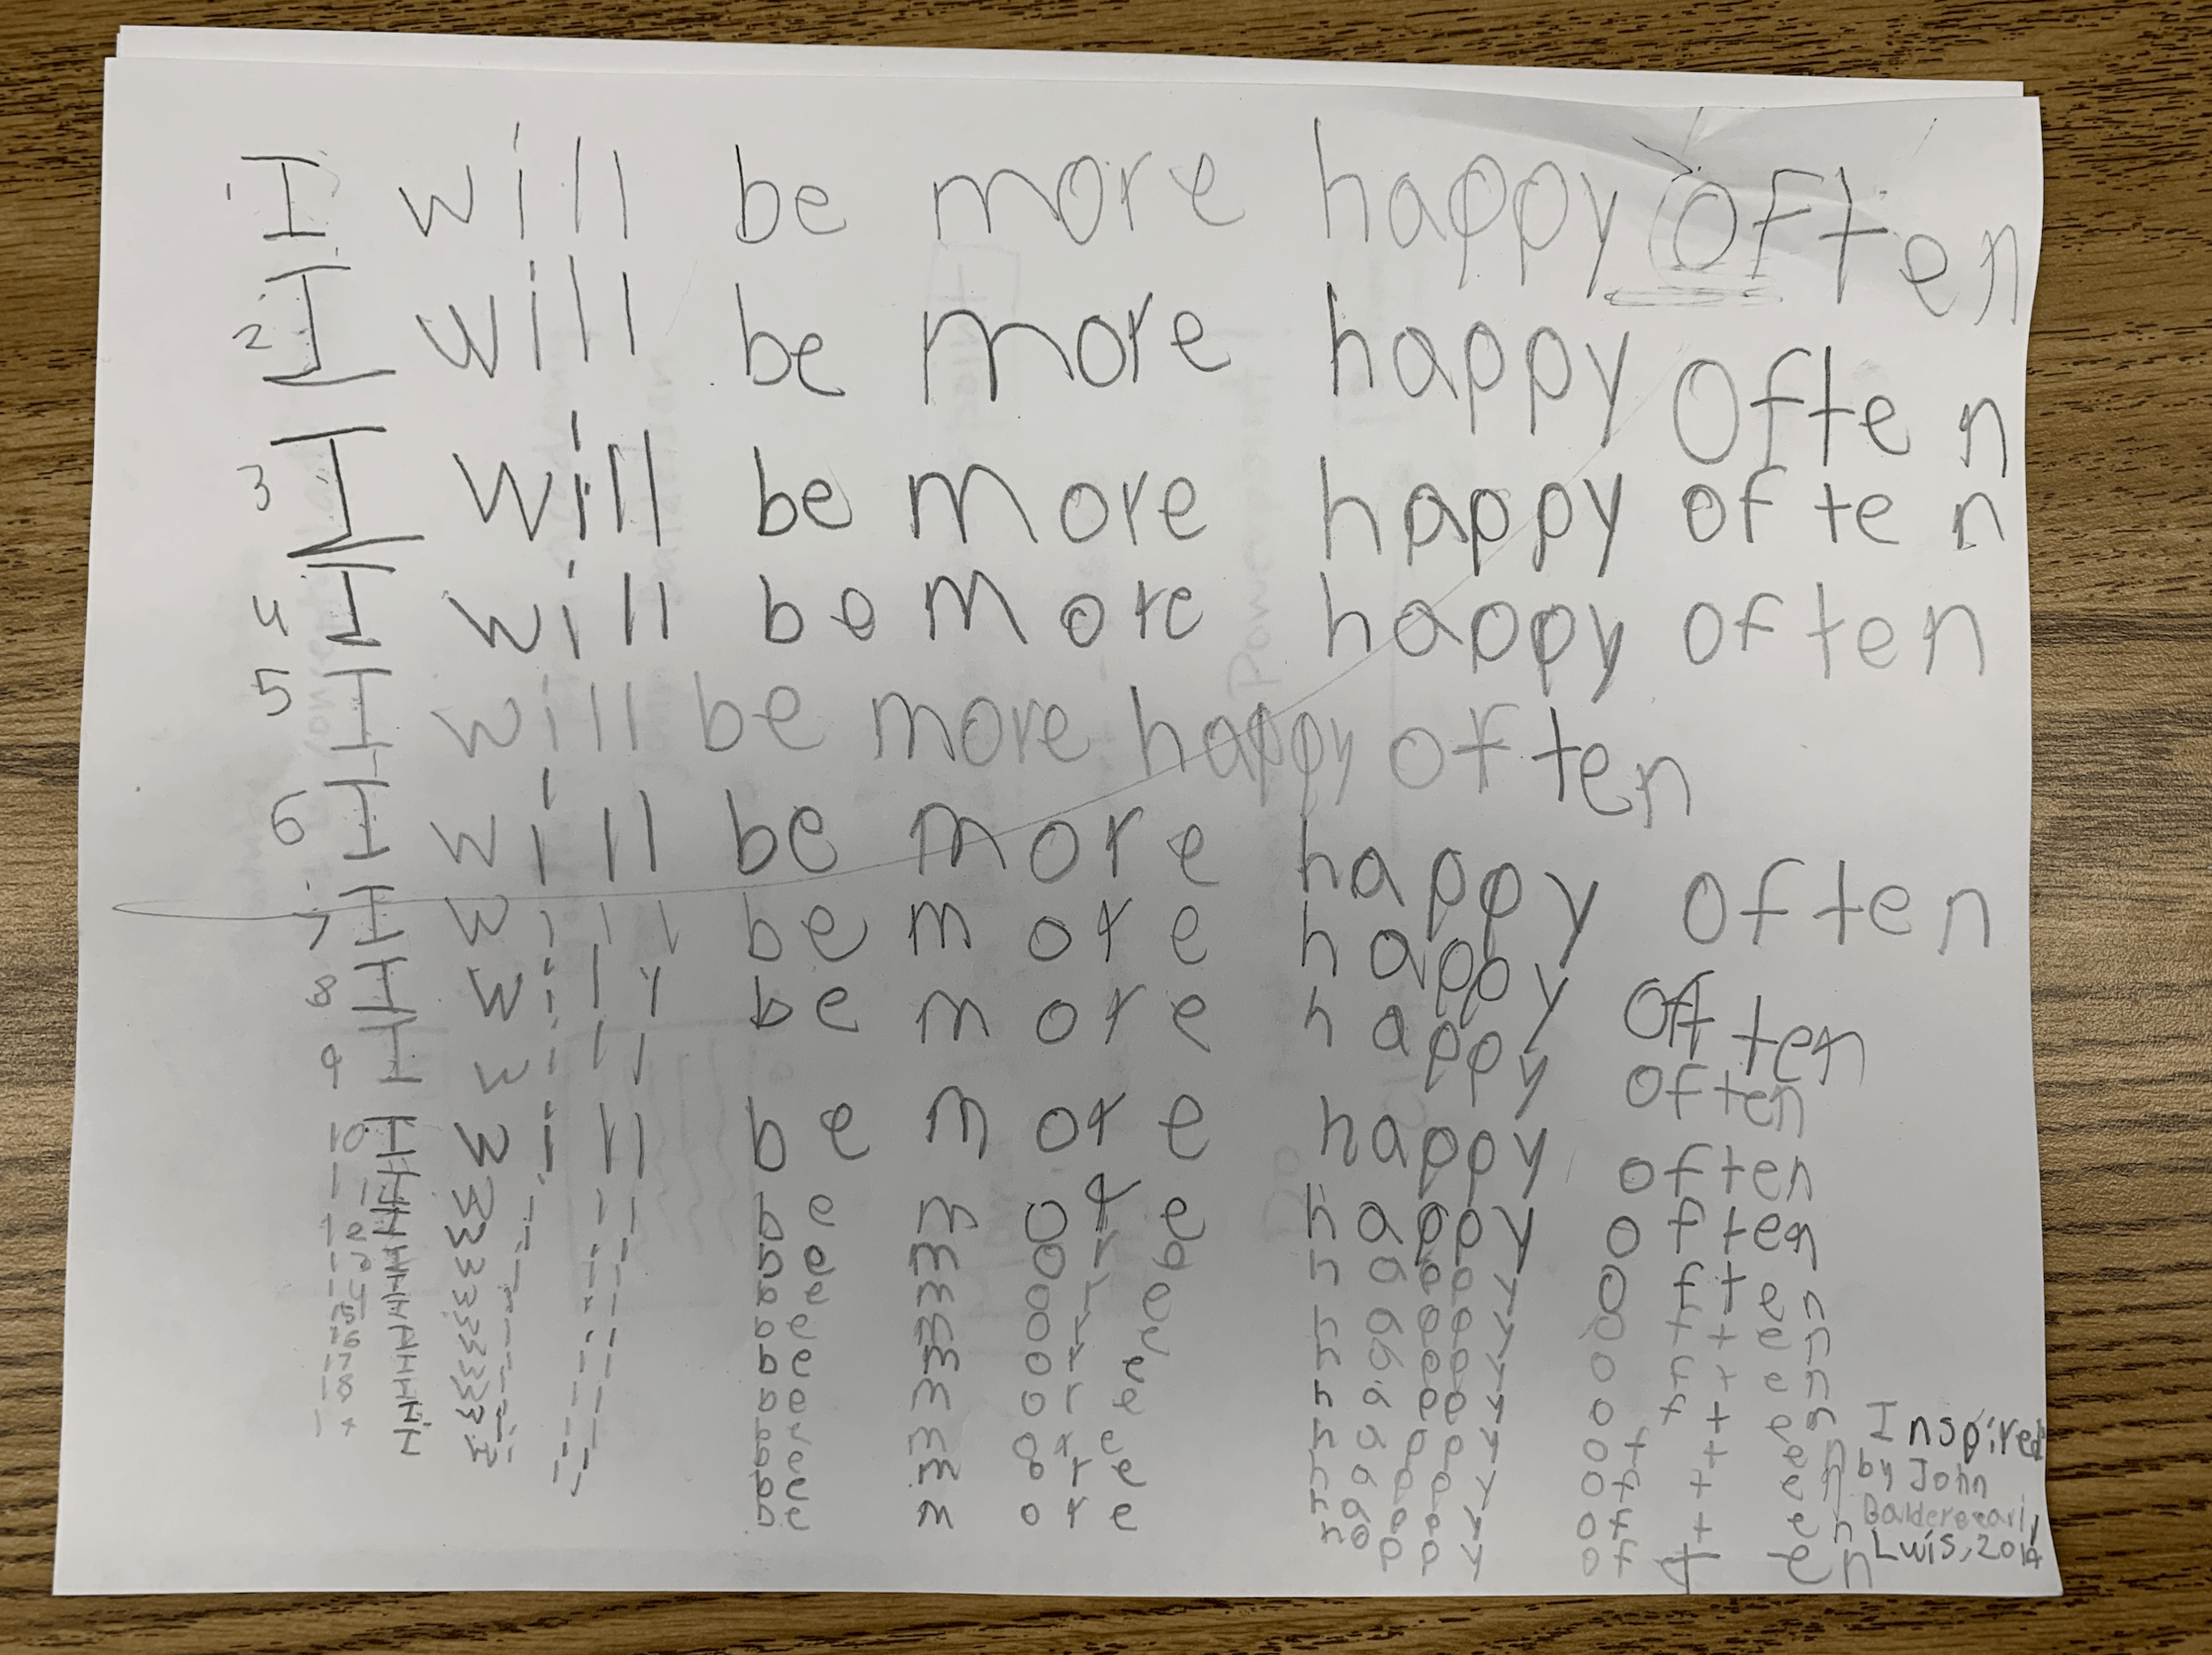 1 I will be more happy often
2 I will be more happy often
3 I will be more happy often
4 I will be more happy often
5 I will be more happy often
6 I will be more happy often
7 I will be more happy often
8 I will be more happy often
9 I will be more happy often
10 I will be more happy often
I will be more happy often
I will be more happy often
I will be more happy often
I will be more happy often
I will be more happy often
I will be more happy often
I will be more happy often
I will be more happy often
Inspired
by John
Luis, 2014